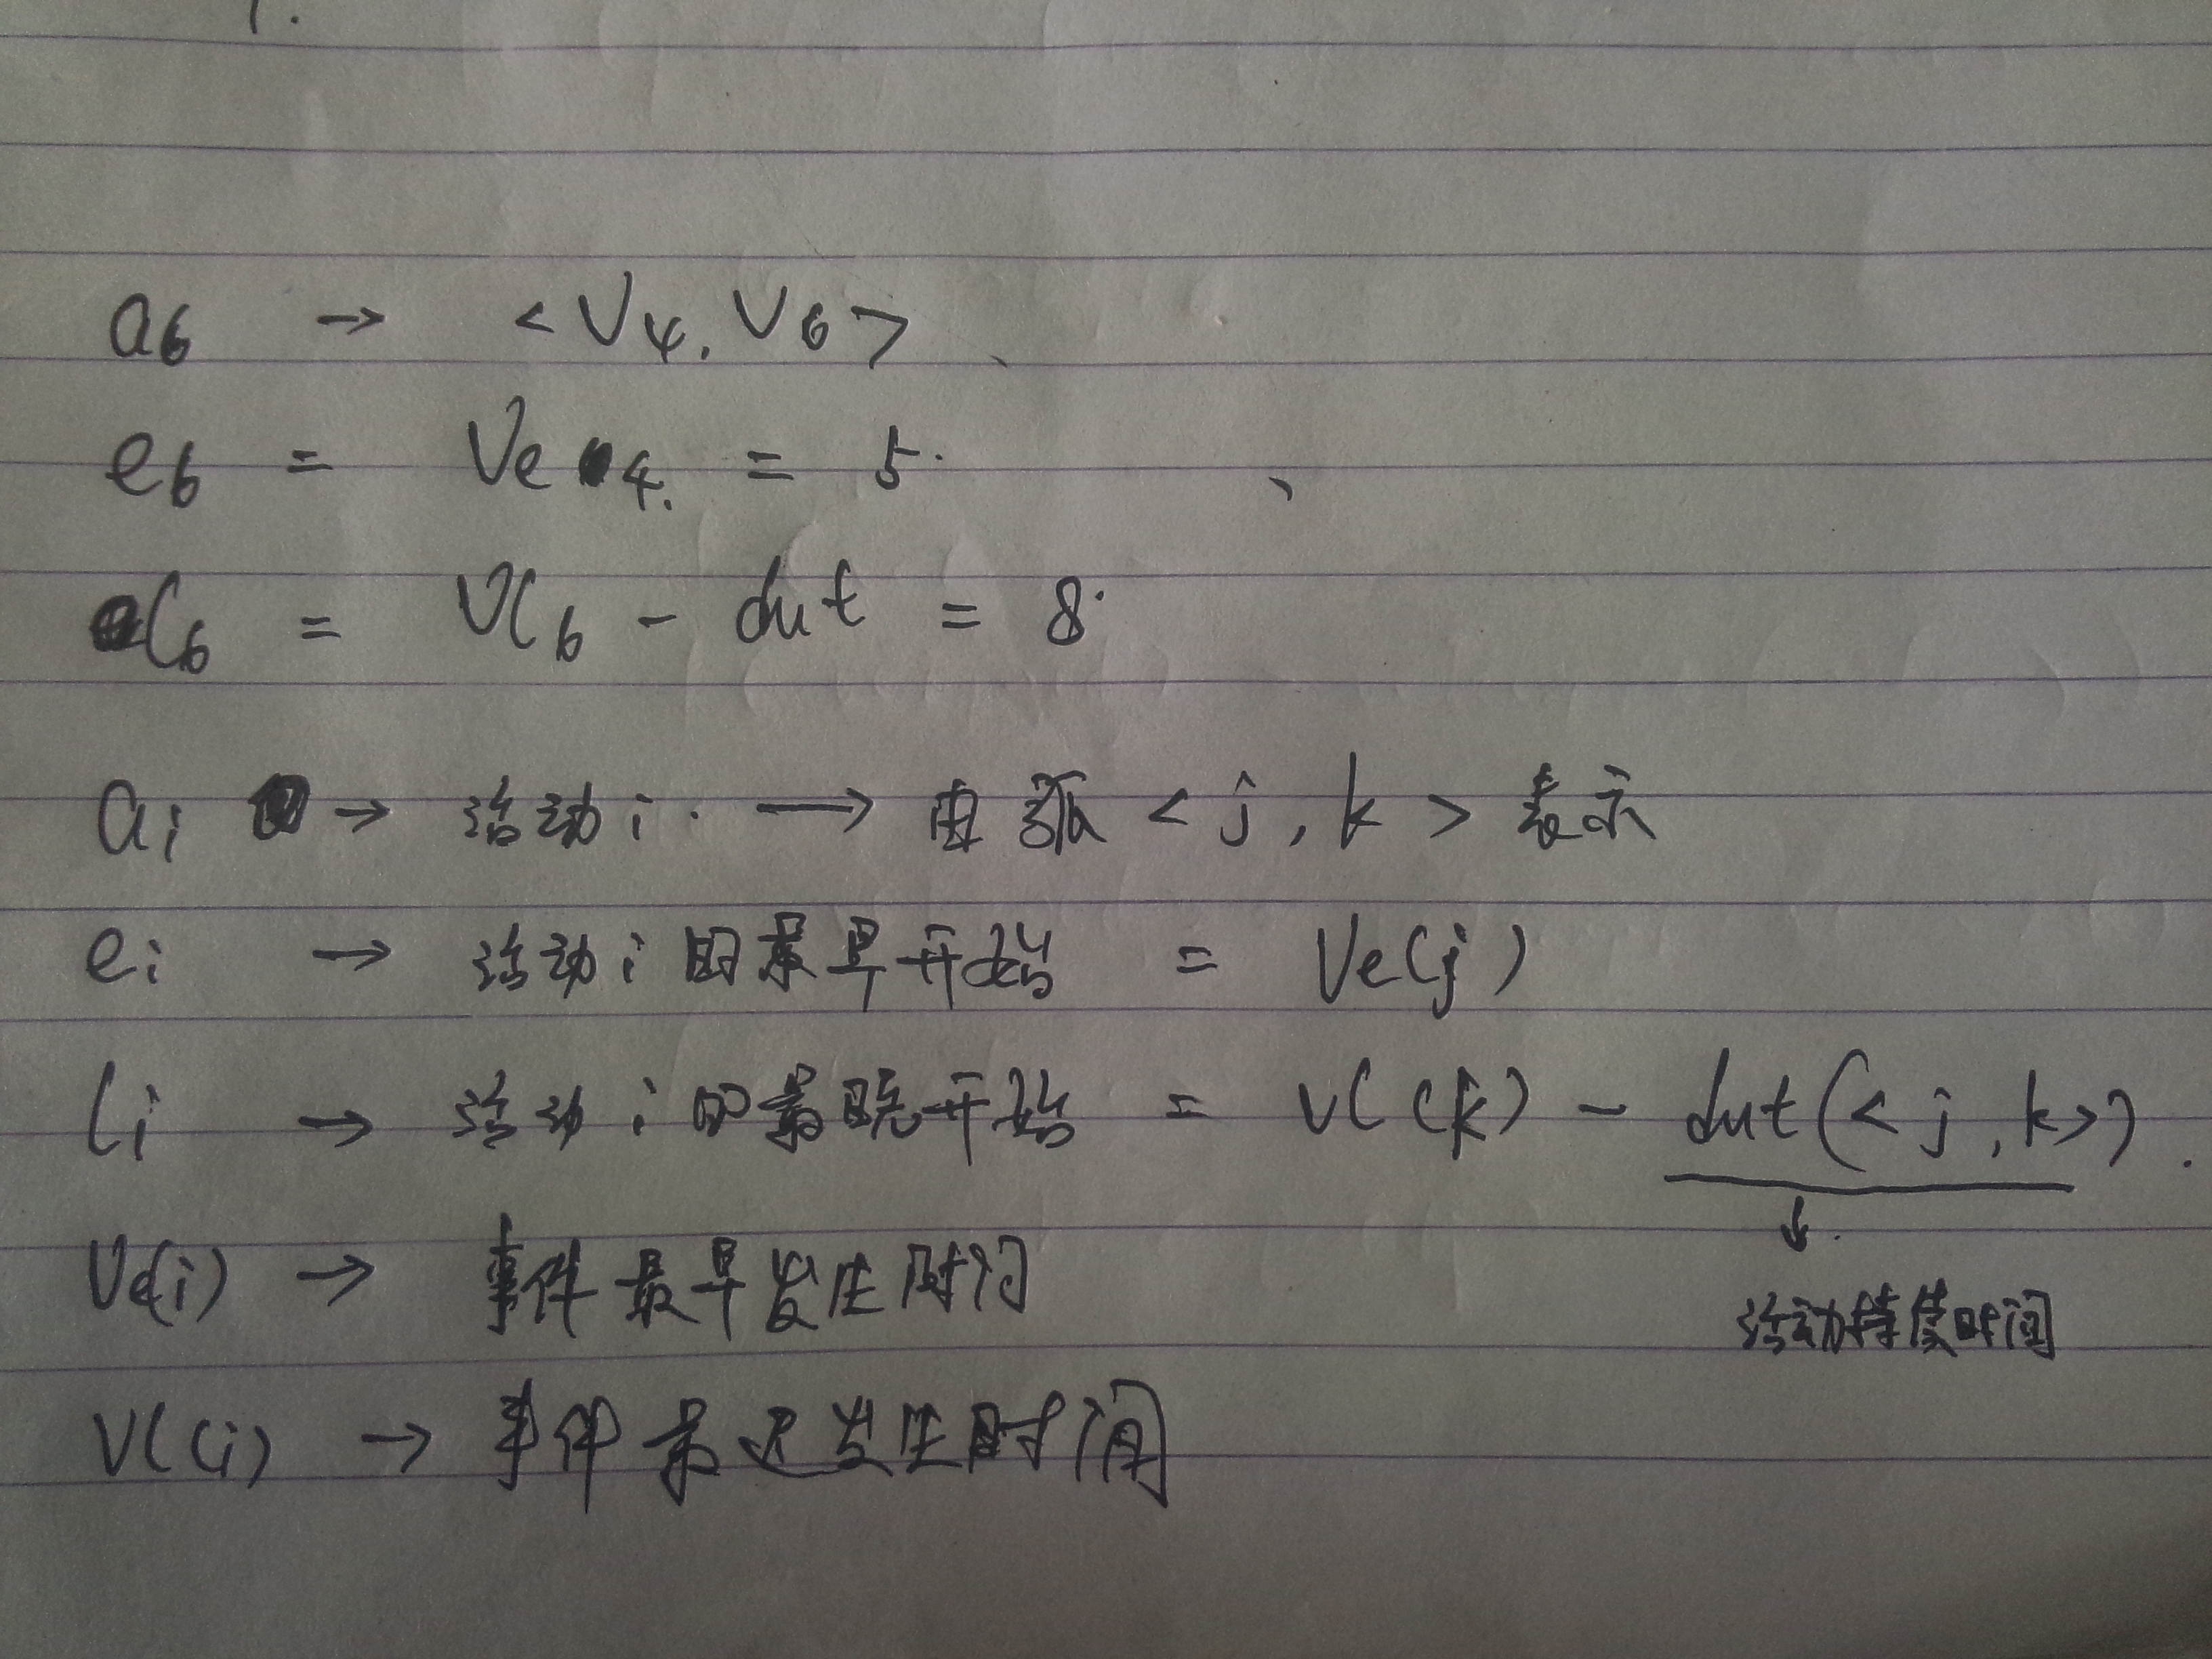 a6 → <V4, V6>
e6 = Ve4 = 5.
l6 = Vl6 - dut = 8.
ai → 活动i. → 由弧 <j, k> 表示
ei → 活动i的最早开始 = Ve(j)
li → 活动i的最晚开始 = Vl(k) - dut(<j, k>)
↓
活动持续时间
Ve(i) → 事件最早发生时间
Vl(i) → 事件最晚发生时间